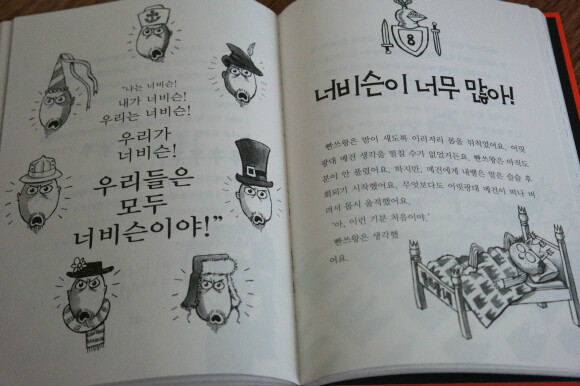 "나는 너비슨!
내가 너비슨!
우리는 너비슨!
우리가
너비슨!
우리들은
모두
너비슨이야!"
8
너비슨이 너무 많아!
빤쓰왕은 밤이 새도록 이리저리 몸을 뒤척였어요. 어릿
광대 메건 생각을 멈출 수가 없었거든요. 빤쓰왕은 아직도
분이 안 풀렸어요. 하지만, 메건에게 내뱉은 말은 슬슬 후
회되기 시작했어요. 무엇보다도 어릿광대 메건이 떠나 버
려서 몹시 울적했어요.
'아, 이런 기분 처음이야.'
빤쓰왕은 생각했
어요.